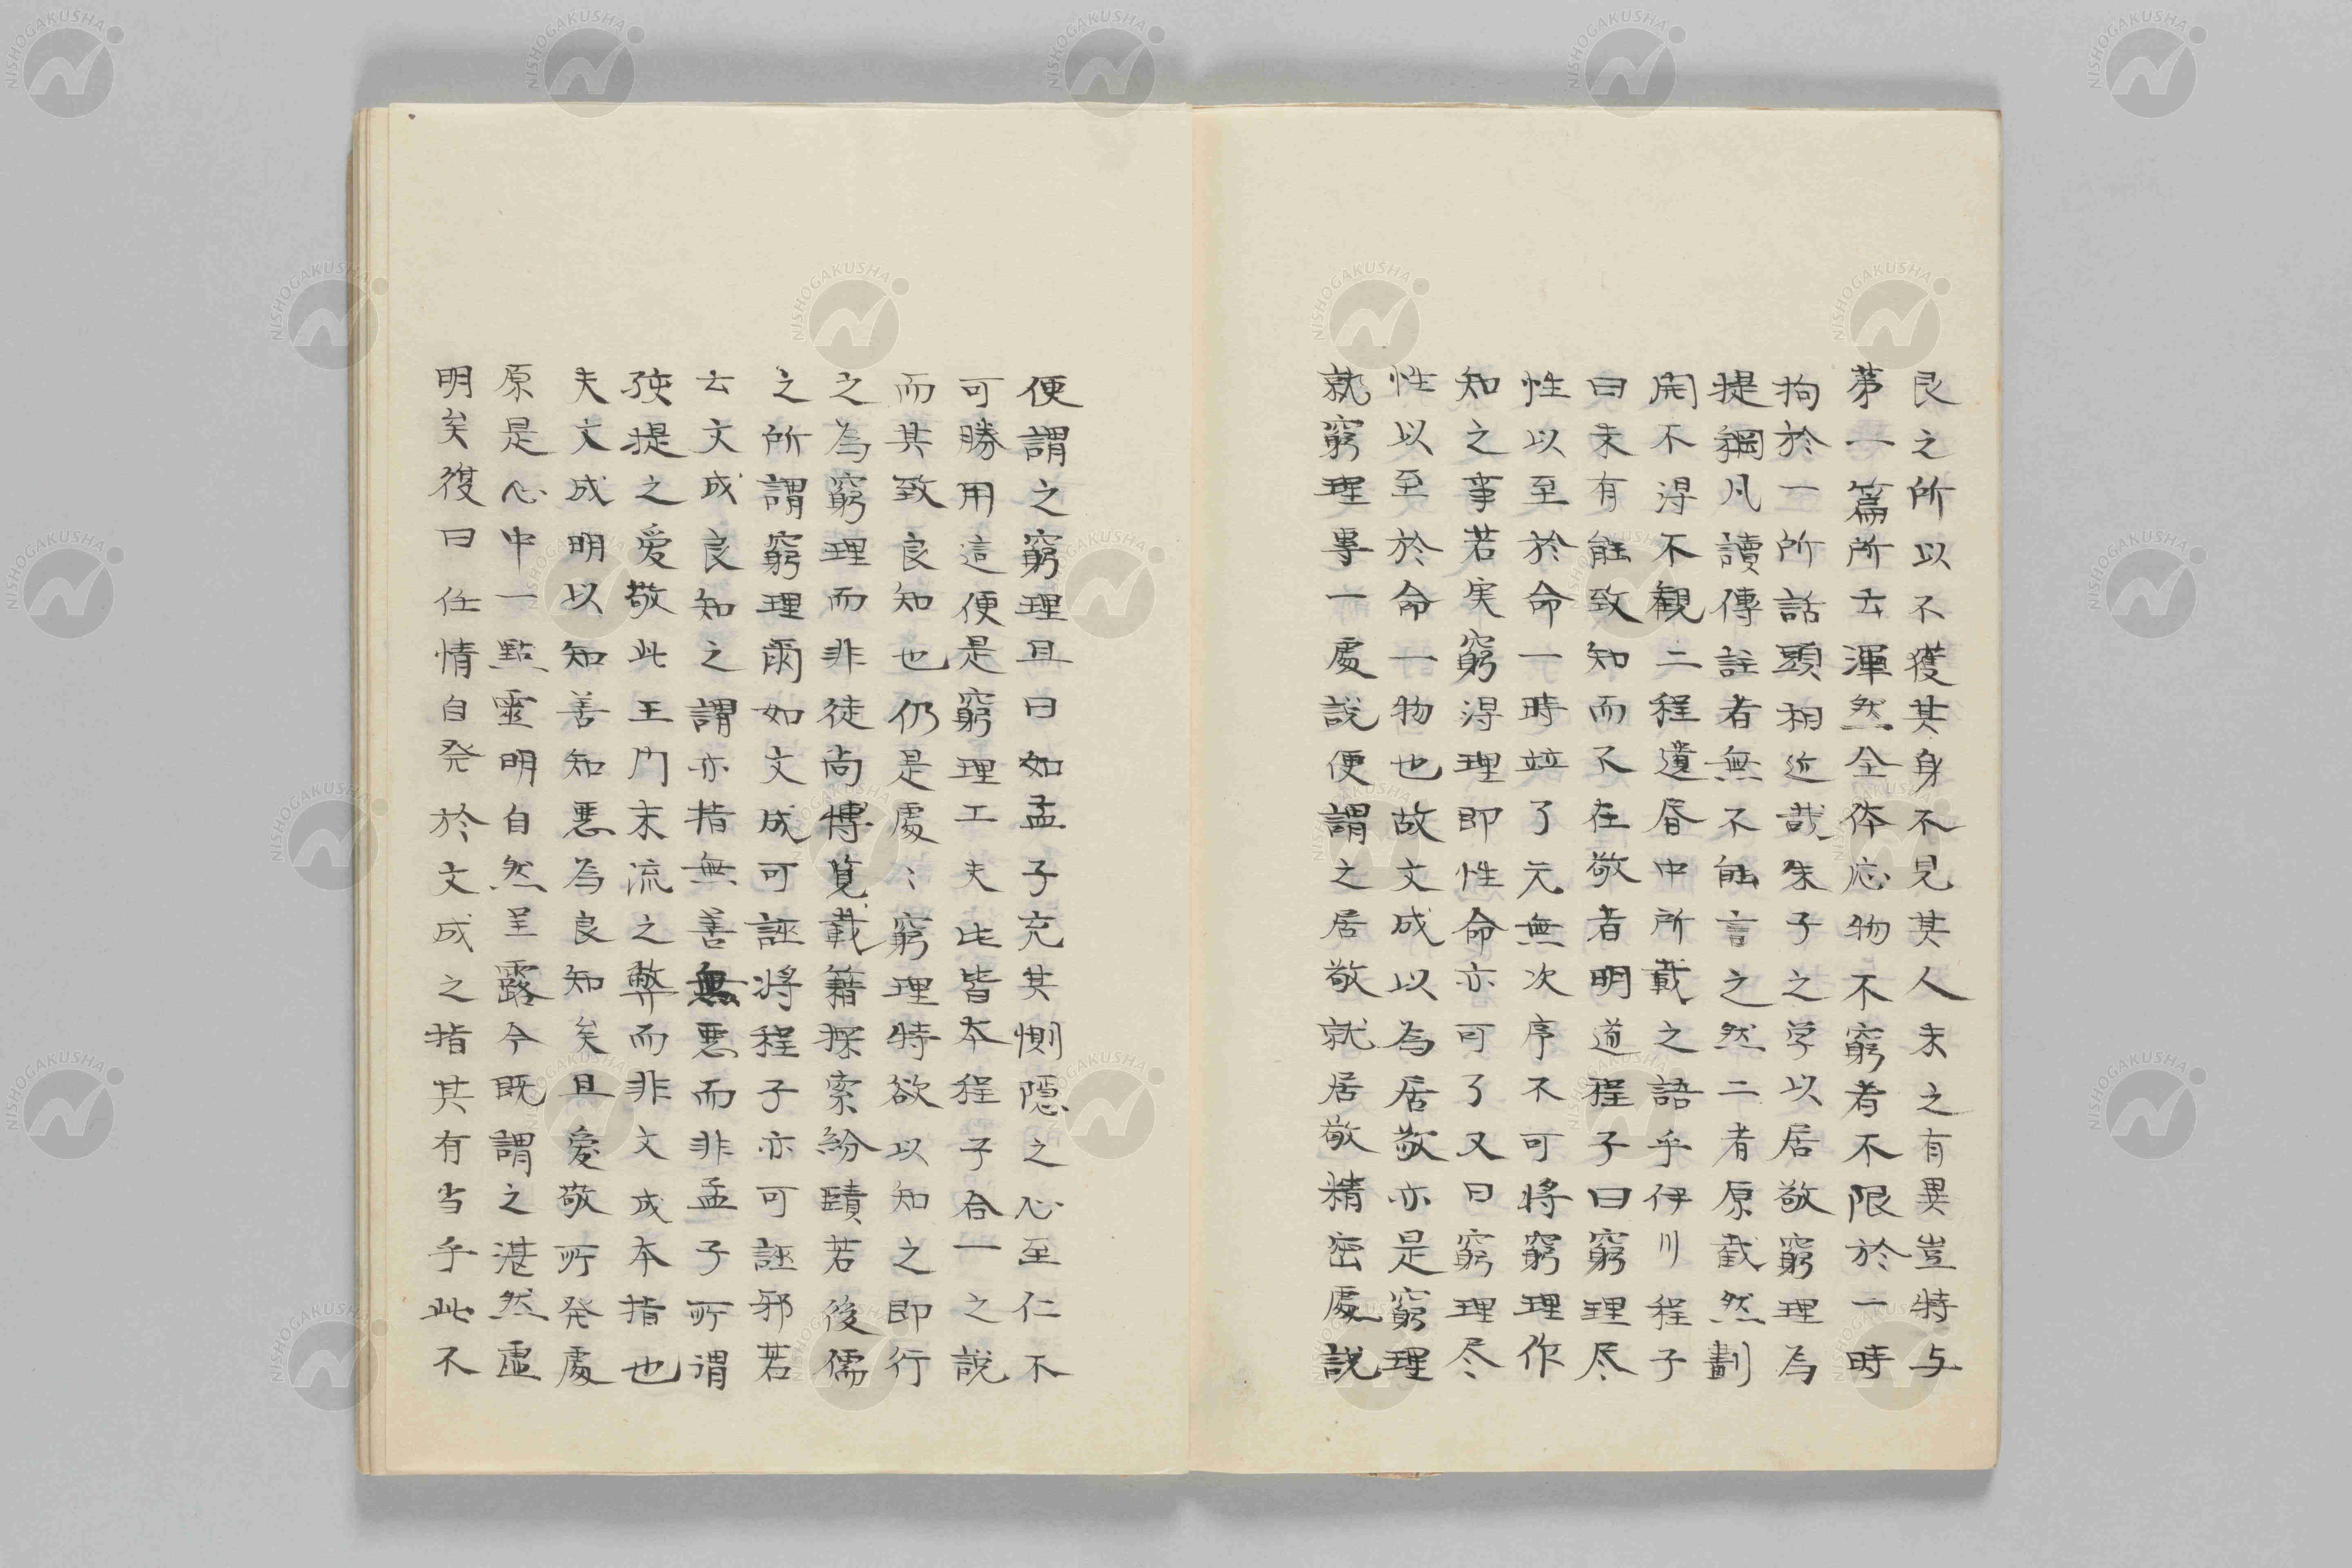 艮之所以不獲其身不見其人未之有異豈特与
第一篇所云渾然全体応物不窮者不限於一時
拘於一所話頭相近哉朱子之学以居敬窮理為
提綱凡讀傳註者無不能言之然二者原截然劃
開不得不観二程遺唇中所載之語乎伊川程子
曰未有能致知而不在敬者明道程子曰窮理尽
性以至於命一時竝了元無次序不可将窮理作
知之事若実窮得理即性命亦可了又曰窮理尽
性以至於命一物也故文成以為居敬亦是窮理
就窮理專一處説便謂之居敬就居敬精密處説
便謂之窮理且曰如孟子充其惻隠之心至仁不
可勝用這便是窮理工夫此皆本程子合一之説
而其致良知也仍是處〻窮理特欲以知之即行
之為窮理而非徒尚博覧載籍探索紛賾若後儒
之所謂窮理爾如文成可誣将程子亦可誣邪若
云文成良知之謂亦指無善無悪而非孟子所谓
孩提之愛敬此王門末流之弊而非文成本指也
夫文成明以知善知悪為良知矣且愛敬所発處
原是心中一點霊明自然呈露今既謂之湛然虚
明矣復曰任情自発於文成之指其有当乎此不